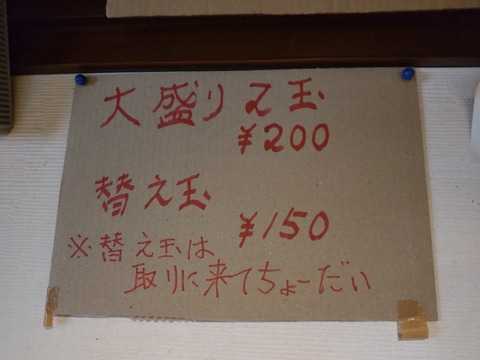 大盛り2玉
¥200
替え玉
¥150
※替え玉は
取りに来てちょーだい